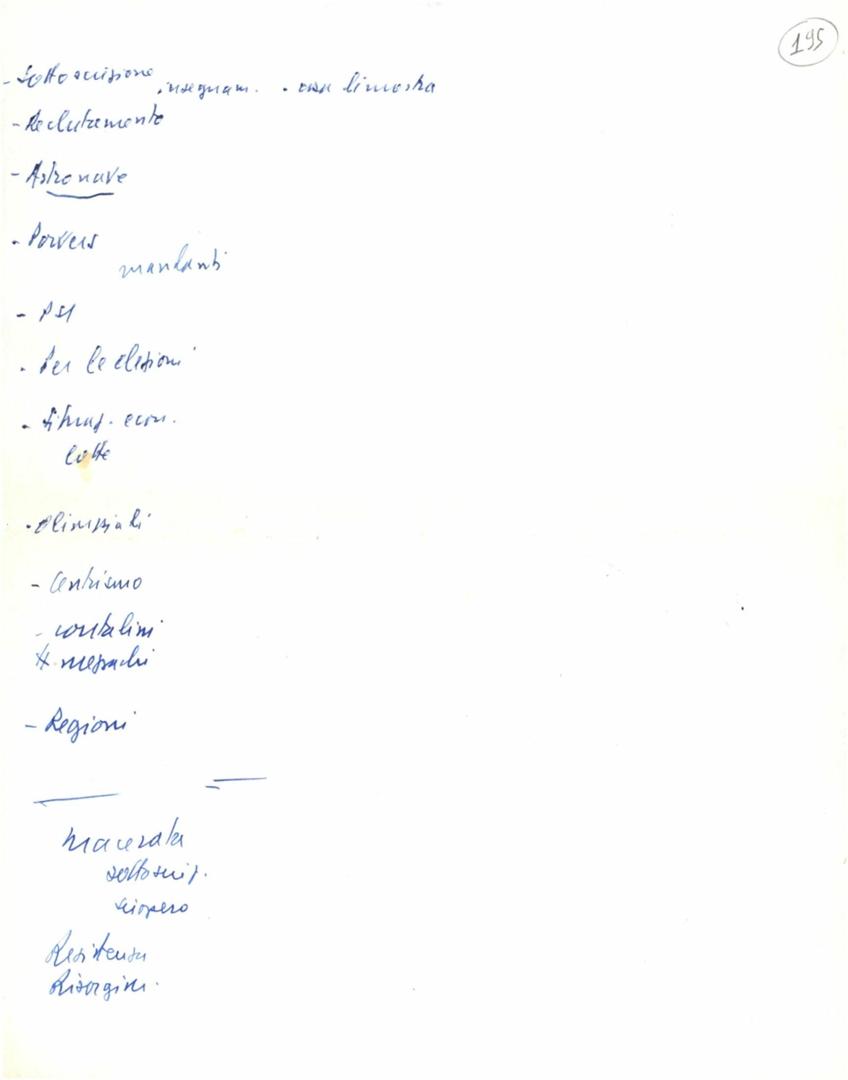 195
- Sottoscrizione insegnam. .
- Reclutamento
- Astronave
-
mandanti
- PSI
. Per le elezioni
. Situaz. econ.
lotte
. Olimpiadi
- Centrismo
- contadini
mezzadri
- Regioni
Macerata
sottoscriz.
sciopero
Resistenza
Risorgim.